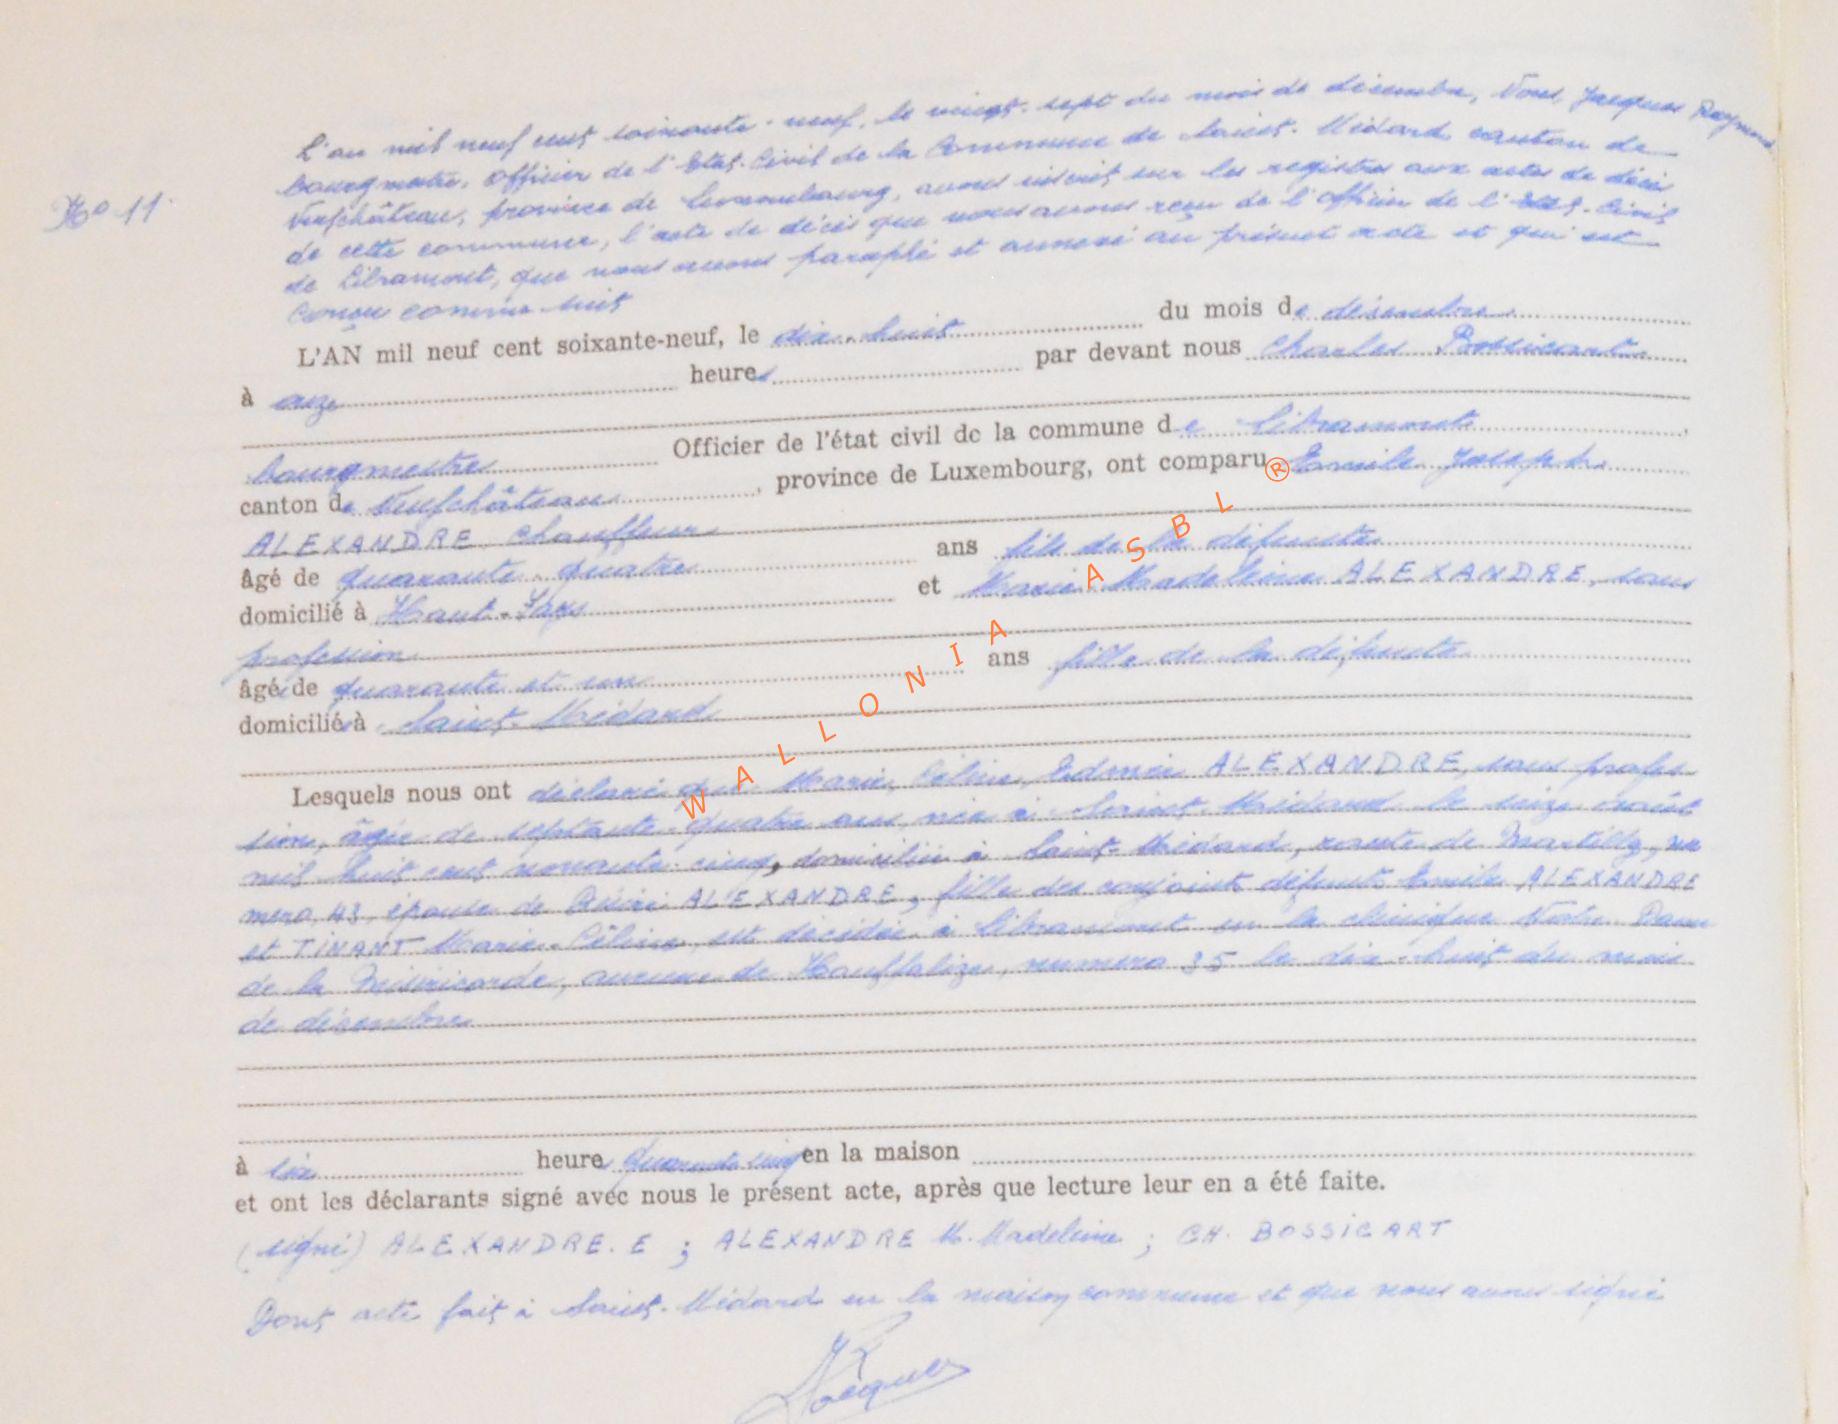 No 11
L'an mil neuf cent soixante-neuf, le vingt-sept du mois de décembre, Nous, Jacques Raymond
bourgmestre, officier de l'Etat-Civil de la Commune de Saint-Médard canton de
Neufchâteau, province de Luxembourg, avons inscrit sur les registres aux actes de décès
de cette commune, l'acte de décès que nous avons reçu de l'officier de l'Etat-Civil
de Libramont, que nous avons paraphé et annexé au présent acte et qui est
conçu comme suit
L'AN mil neuf cent soixante-neuf, le dix-huit du mois de décembre
à onze heures par devant nous Charles Bossicart
bourgmestre Officier de l'état civil de la commune de Libramont,
canton de Neufchâteau, province de Luxembourg, ont comparu Emile Joseph
ALEXANDRE, chauffeur
âgé de quarante-quatre ans fils de la défunte
domicilié à Haut-Fays et Marie Madeleine ALEXANDRE, sans
profession
âgée de quarante et un ans fille de la défunte
domicilié à Saint-Médard
Lesquels nous ont déclaré que Marie, Céline, Edmée ALEXANDRE, sans profes
sion, âgée de septante-quatre ans, née à Saint-Médard le seize août
mil huit cent nonante-cinq, domiciliée à Saint-Médard, route de Martilly, nu
méro, 43, épouse de ALEXANDRE, fille des conjoints défunts Emile ALEXANDRE
et TINANT Marie-Céline, est décédée à Libramont en la clinique Notre Dame
de la Miséricorde, avenue de Houffalize, numéro 35 le dix-huit du mois
de décembre
à six heure quarante cinq en la maison
et ont les déclarants signé avec nous le présent acte, après que lecture leur en a été faite.
(signé) ALEXANDRE. E ; ALEXANDRE M. Madeleine ; CH. BOSSICART
Dont acte fait à Saint-Médard en la maison communale et que nous avons signé
Jacques
WALLONIA ASBL ®